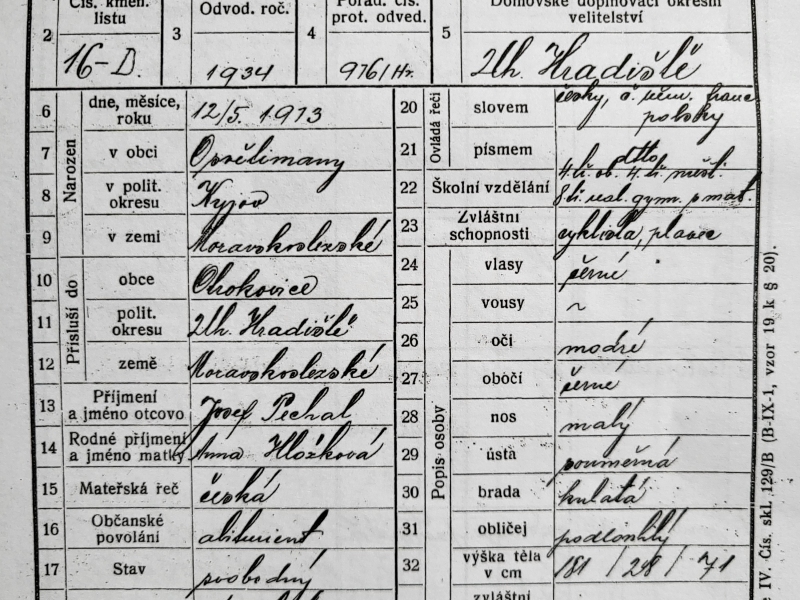 2
Čís. kmen. listu
16-D.
3
Odvod. roč.
1934
4
Pořad. čís. prot. odved.
976/Hr.
5
Domovské doplňovací okresní velitelství
Uh. Hradiště
Narozen
6
dne, měsíce, roku
12/5. 1913
7
v obci
8
v polit. okresu
Kyjov
9
v zemi
Moravskoslezské
Přísluší do
10
obce
Otrokovice
11
polit. okresu
Uh. Hradiště
12
země
Moravskoslezské
13
Příjmení a jméno otcovo
Josef Pechal
14
Rodné příjmení a jméno matky
Anna Hložková
15
Mateřská řeč
česká
16
Občanské povolání
abiturient
17
Stav
svobodný
Ovládá řeči
20
slovem
česky, č. něm. franc
polsky
21
písmem
dtto
22
Školní vzdělání
4 tř. ob. 4 tř. měšť.
8 tř. real. gymn. s mat.
23
Zvláštní schopnosti
cyklista, plavec
Popis osoby
24
vlasy
černé
25
vousy
~
26
oči
modré
27
obočí
černé
28
nos
malý
29
ústa
souměrná
30
brada
kulatá
31
obličej
podlouhlý
32
výška těla v cm
181 / 28 / 71
zvláštní
IV. Čís. skl. 129/B (B-IX-1, vzor 19 k § 20).